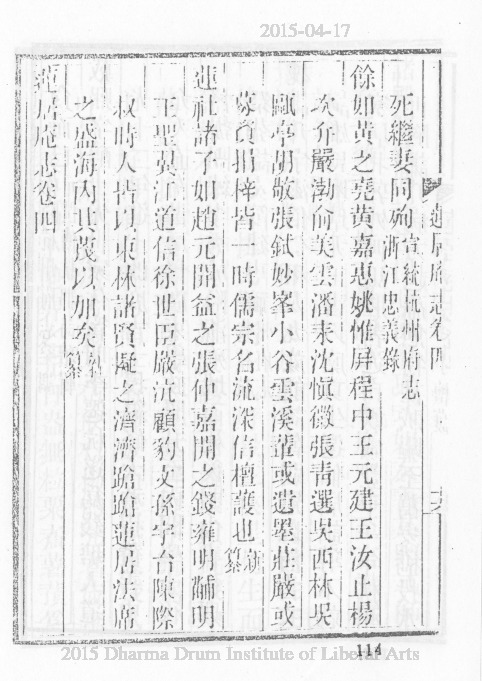 2015-04-17
蓮居庵志卷四
死繼妻同殉宣統杭州府志
浙江忠義錄
餘如黃之堯黃嘉惠姚惟屏程中王元建王汝止楊
次弁嚴渤俞美雲潘耒沈愼微張靑選吳西林吳
甌亭胡敬張鉽妙峯小谷雲溪輩或遺墨莊嚴或
募貲捐梓皆一時儒宗名流深信檀護也新
纂
蓮社諸子如趙元開益之張仲嘉開之錢雍明黼明
王聖翼江道信徐世臣嚴沆顧豹文孫宇台陳際
叔時人皆以東林諸賢疑之濟濟蹌蹌蓮居法席
之盛海內其蔑以加矣新
纂
蓮居庵志卷四
114
2015 Dharma Drum Institute of Liberal Arts